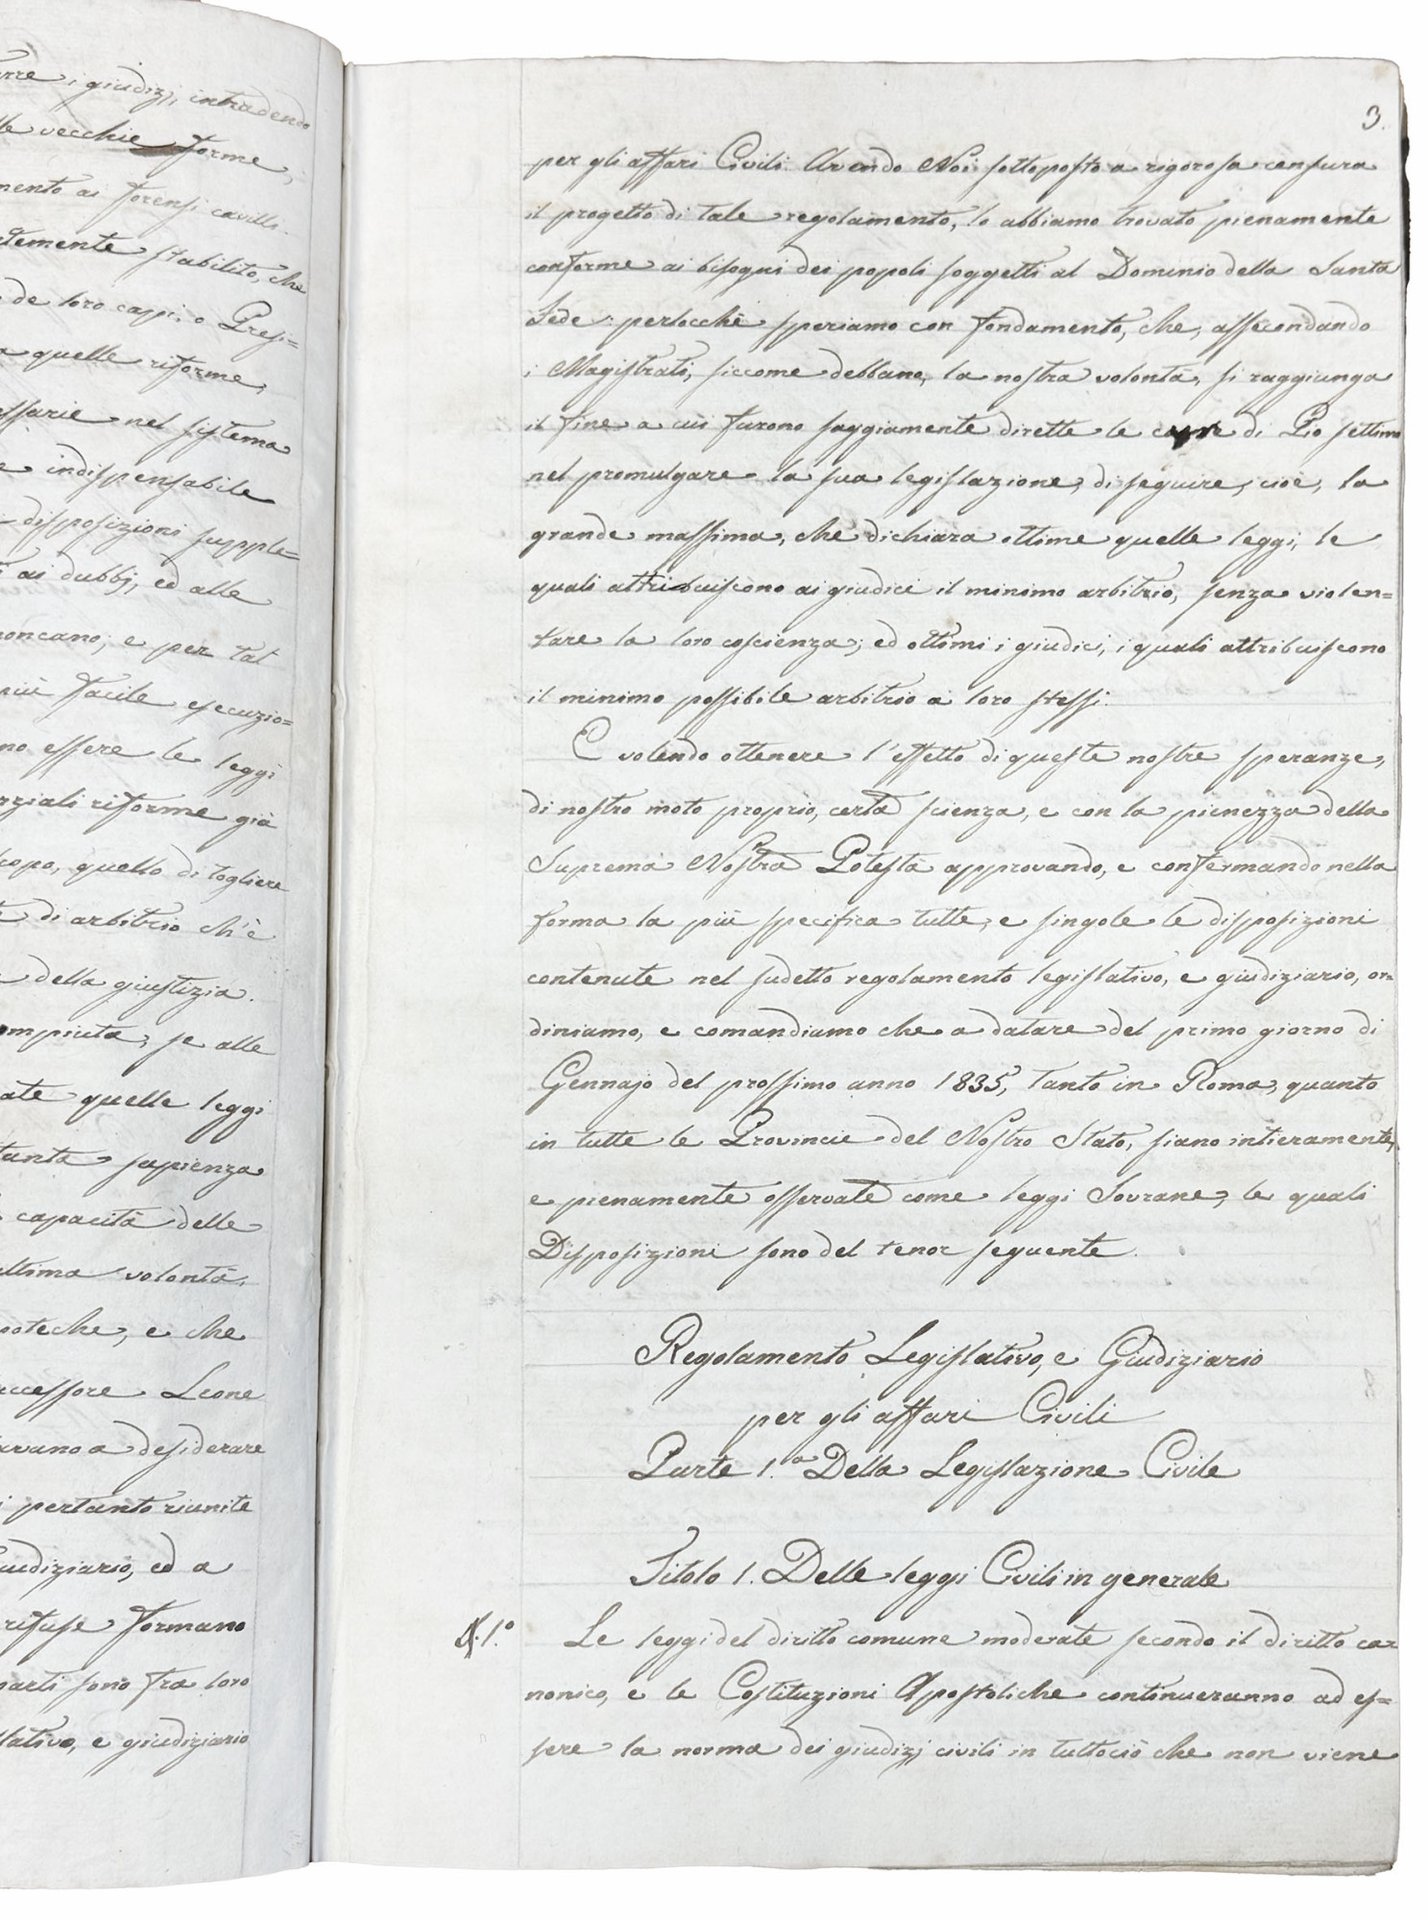 rre, i giudizj, intradendo
le vecchie forme,
mento ai forensi cavilli.
temente stabilito, che
de loro cappi, o Presi=
a quelle riforme,
essarie nel sistema
e indispensabile
disposizioni supple=
i ai dubbj, ed alle
moncano, e per tal
più facile esecuzio=
no essere le leggi
rziali riforme già
scopo, quello di togliere
e di arbitrio ch'è
della giustizia.
ompiuta, se alle
ate quelle leggi
tanta sapienza
capacità delle
ultima volontà,
poteche, e che
uccessore Leone
avano a desiderare
i pertanto riunite
iudiziario, ed a
rifuse formano
parti sono fra loro
slativo, e giudiziario
3.
per gli affari Civili. Avendo Noi sottoposto a rigorosa censura
il progetto di tale regolamento, lo abbiamo trovato pienamente
conforme ai bisogni dei popoli soggetti al Dominio della Santa
Sede: perlocchè speriamo con fondamento, che, assecondando
i Magistrati, siccome debbano, la nostra volontà, si raggiunga
il fine a cui furono saggiamente dirette le cure di Pio settimo
nel promulgare la sua legislazione, di seguire, cioè, la
grande massima, che dichiara ottime quelle leggi, le
quali attribuiscono ai giudici il minimo arbitrio, senza violen=
tare la loro coscienza; ed ottimi i giudici, i quali attribuiscono
il minimo possibile arbitrio a loro stessi.
E volendo ottenere l'effetto di queste nostre speranze,
di nostro moto proprio, certa scienza, e con la pienezza della
Suprema Nostra Potesta approvando, e confermando nella
forma la più specifica tutte, e singole le disposizioni
contenute nel sudetto regolamento legislativo, e giudiziario, or=
diniamo, e comandiamo che a datare del primo giorno di
Gennajo del prossimo anno 1835, tanto in Roma, quanto
in tutte le Provincie del Nostro Stato, siano intieramente,
e pienamente osservate come leggi Sovrane, le quali
Disposizioni sono del tenor seguente.
Regolamento Legislativo, e Giudiziario
per gli affari Civili
Parte 1.a Della Legislazione Civile
Titolo 1. Delle leggi Civili in generale
§. 1.°
Le leggi del diritto comune moderate secondo il diritto ca=
nonico, e le Costituzioni Apostoliche continueranno ad es=
sere la norma dei giudizj civili in tuttociò che non viene